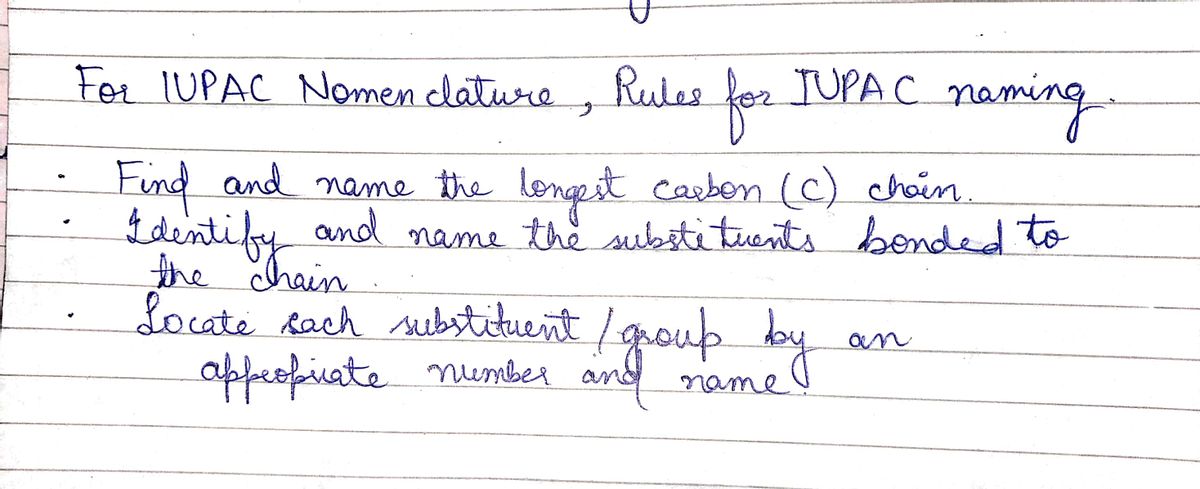 For IUPAC Nomenclature, Rules for IUPAC naming.
· Find and name the longest carbon (C) chain.
· Identify and name the substituents bonded to
the chain.
· Locate each substituent / group by an
appropriate number and name.